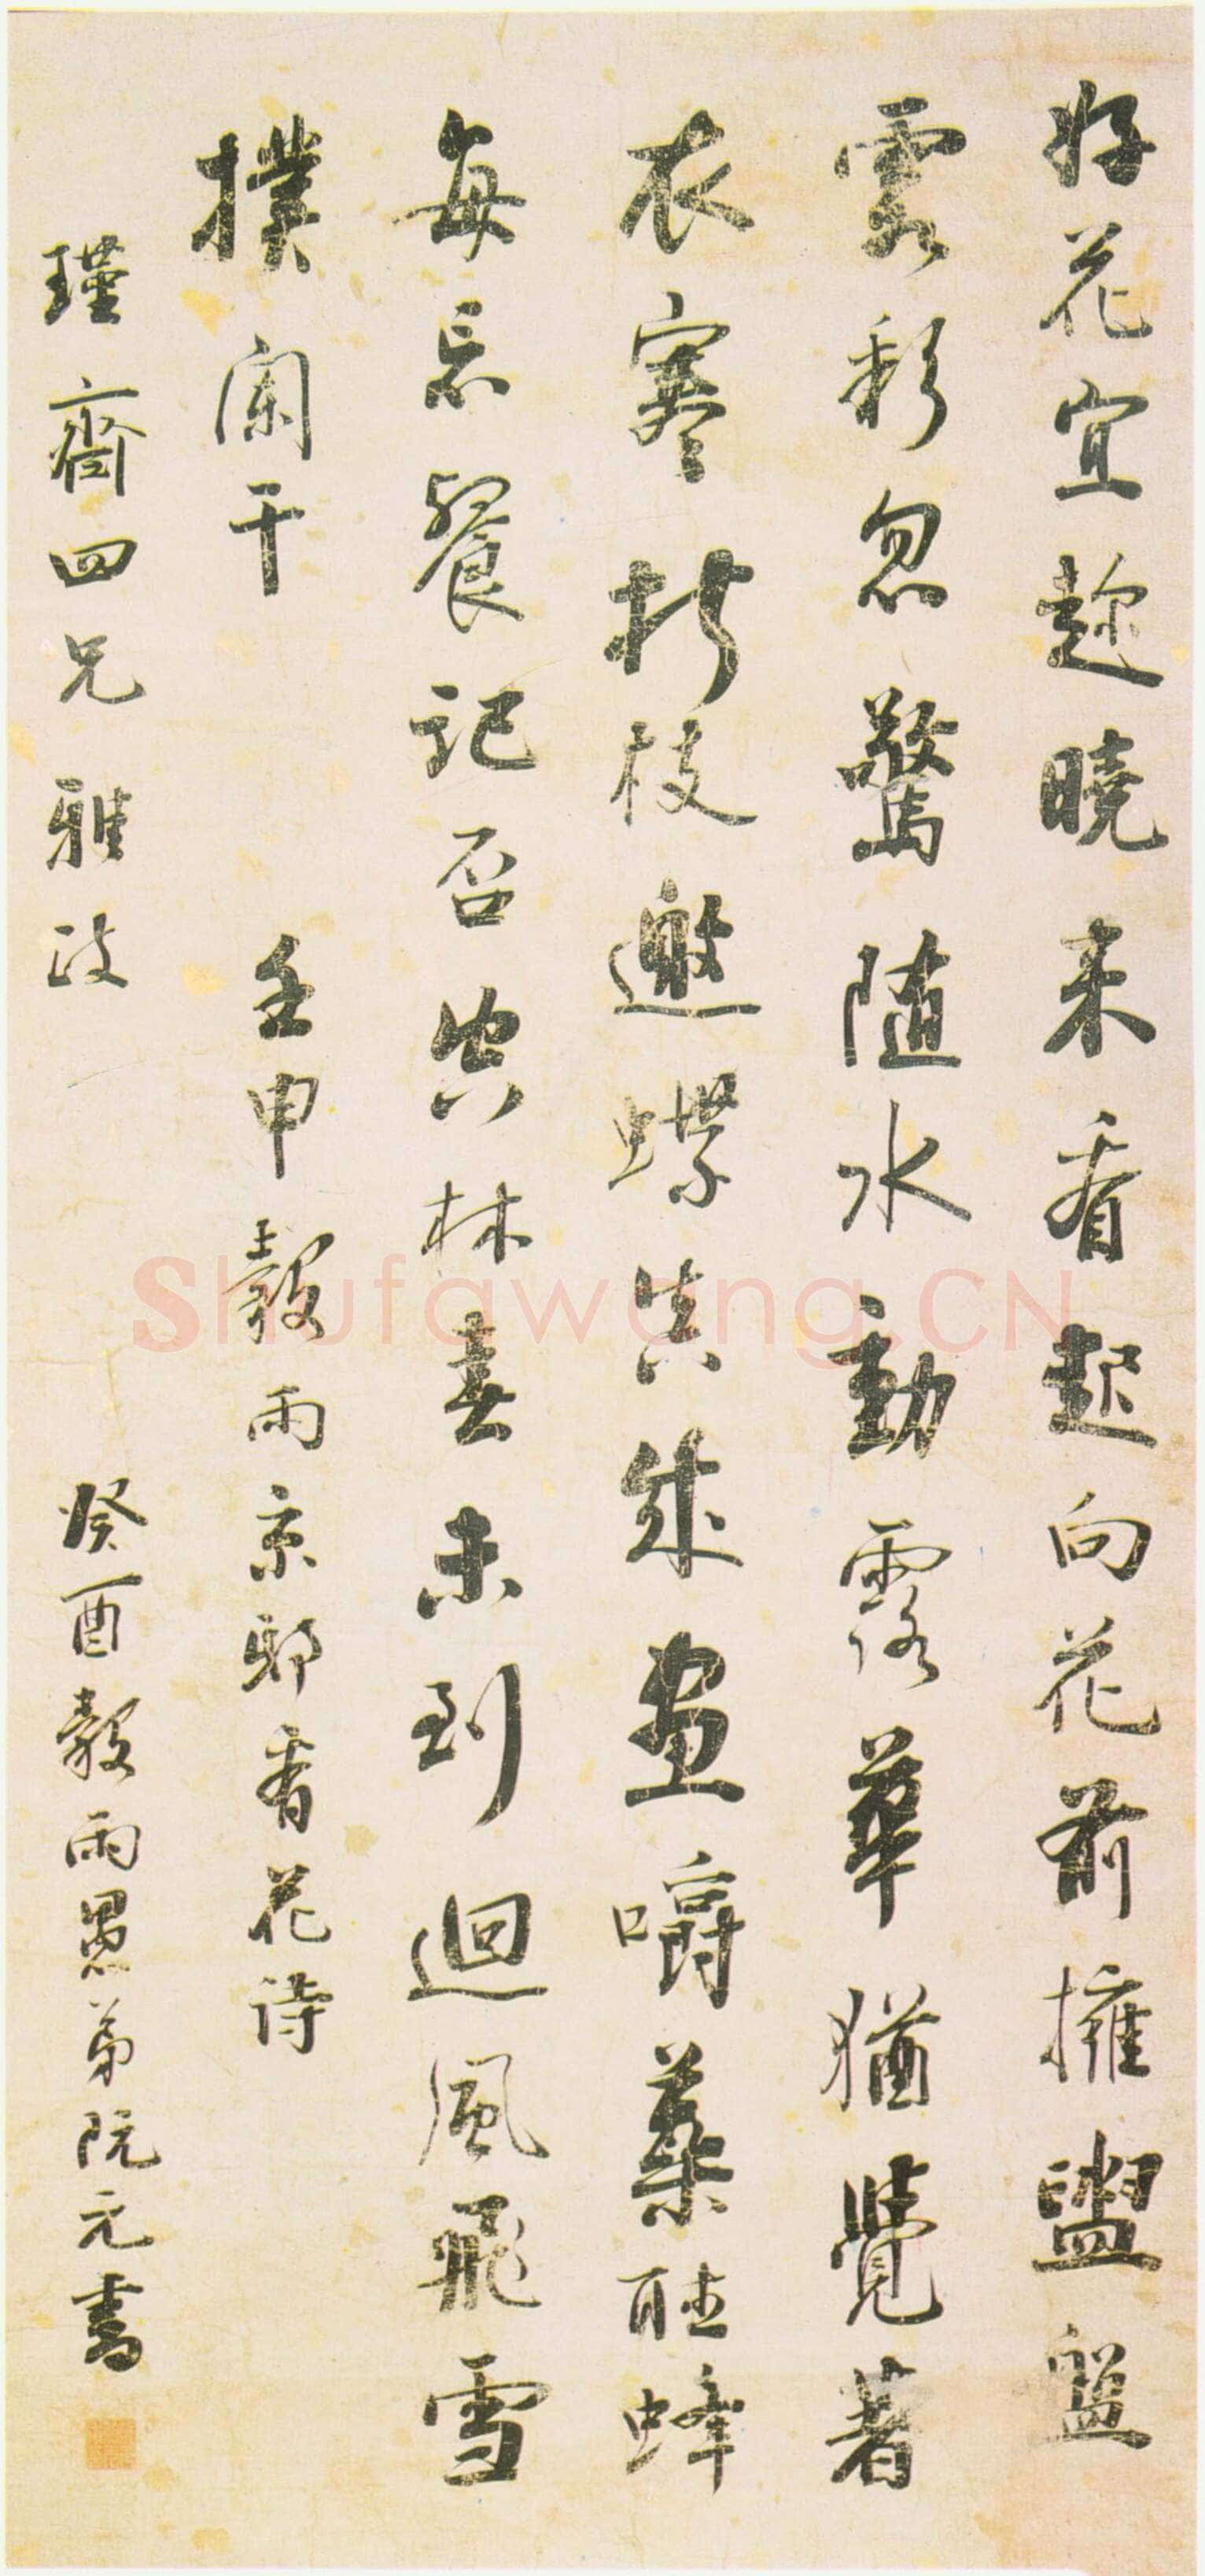 好花宜趁曉來看起向花前擁盥盤
雲彩忽驚隨水動露華猶覺著
衣寒折枝邀蝶真成畫嚼蘂聽蜂
每忘餐記否空林春未到迴風飛雪
撲闌干 壬申穀雨京邸看花詩
瑾齋四兄雅政 癸酉穀雨愚弟阮元書
Shufawang.CN